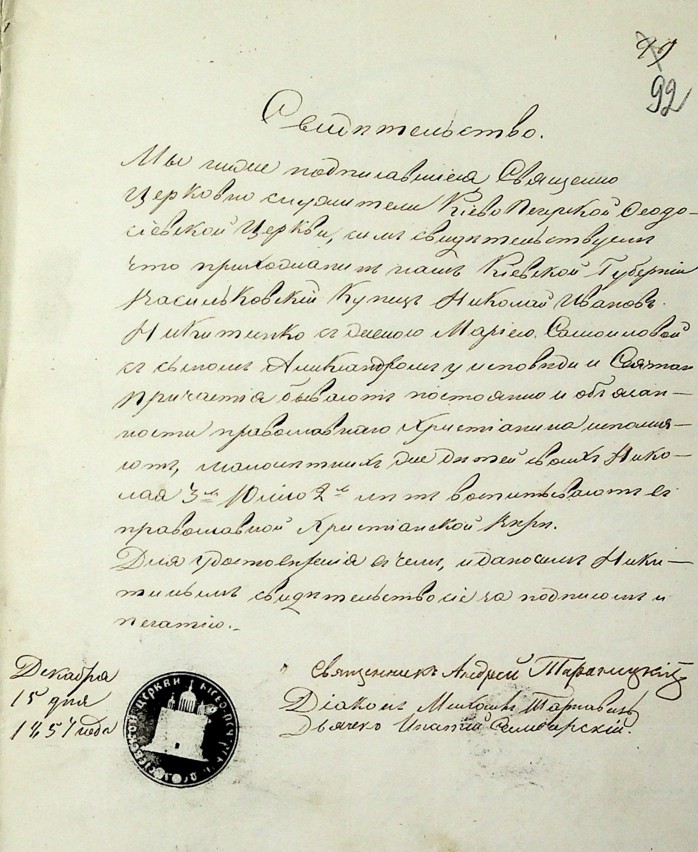 92
Свидѣтельство.
Мы ниже подписавшіеся, Священно
Церковно служители Кіево Печерской Ѳеодо-
сіевской Церкви, симъ свидѣтельствуемъ
что прихожанинъ нашъ Кіевской Губерніи
Васильковскій Купецъ Николай Ивановъ
Никитенко съ женою Маріею Самойловой
съ сыномъ Александромъ у исповѣди и Святаго
Причастія бываютъ постоянно и обязан-
ности православнаго Христіанина исполня-
ютъ, малолѣтнихъ же дѣтей своихъ Нико-
лая 3хъ Юлію 2хъ лѣтъ воспитываютъ въ
православной Христіанской Вѣрѣ.
Для удостовѣренія въ чемъ, и даносимъ Ники-
тенкѣ свидѣтельство сіе за подписомъ и
печатію.
Декабря
15 дня
1857 года
Священникъ Андрей
Діаконъ Михаилъ
Дьячекъ Ипатій